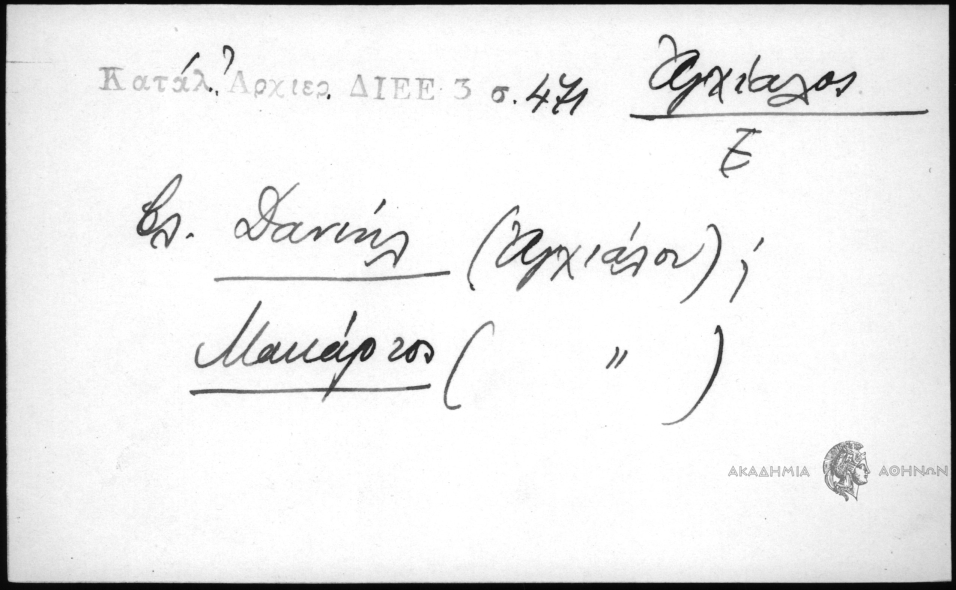 Κατάλ. Ἀρχιερ. ΔΙΕΕ 3 σ. 471 Ἀγχίαλος
Ε
βλ. Δανιήλ (Ἀγχιάλου) ;
Μακάριος ( " )
ΑΚΑΔΗΜΙΑ ΑΘΗΝΩΝ